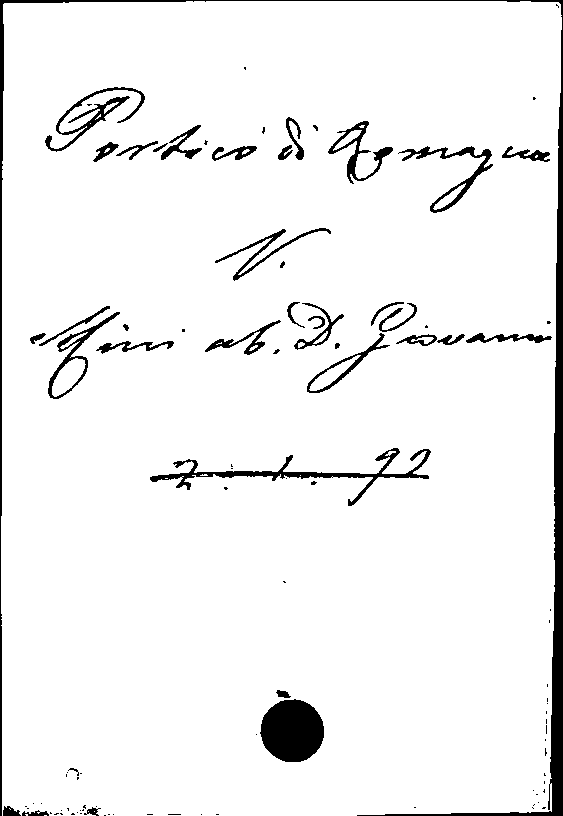 Portico di Romagna
V.
Mini ab. D. Giovanni
2. 1. 92